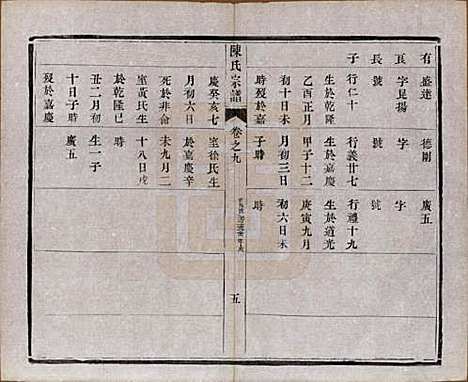 有 盛達 德剛 廣五
字昆揚 字 字
長 號 號 號
子 行仁十 行義廿七 行禮十九
生於乾隆 生於嘉慶 生於道光
乙酉正月 甲子十二 庚寅九月
初十日未 月初三日 初六日未
時歿於嘉 子時 時
陳氏宗譜 卷之九 五
慶癸亥七 室徐氏生
月初六日 於嘉慶辛
死於非命 未九月二
室黃氏生 十八日戌
於乾隆己 時
丑二月初 生一子
十日子時 廣五
歿於嘉慶